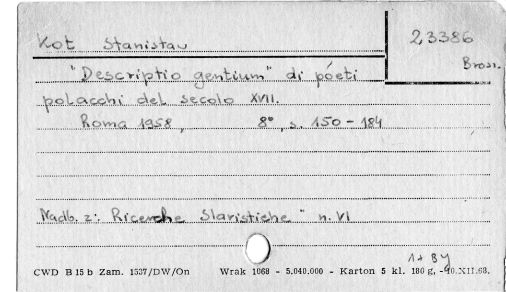 Kot Stanisław 23386
Brosz.
"Descriptio gentium" di poeti
polacchi del secolo XVII.
Roma 1958, 8°, s. 150-184
Nadb. z: Ricerche Slavistiche" n. VI
1+8y
CWD B 15 b Zam. 1537/DW/On Wrak 1068 - 5.040.000 - Karton 5 kl. 180 g, -10.XII.68.